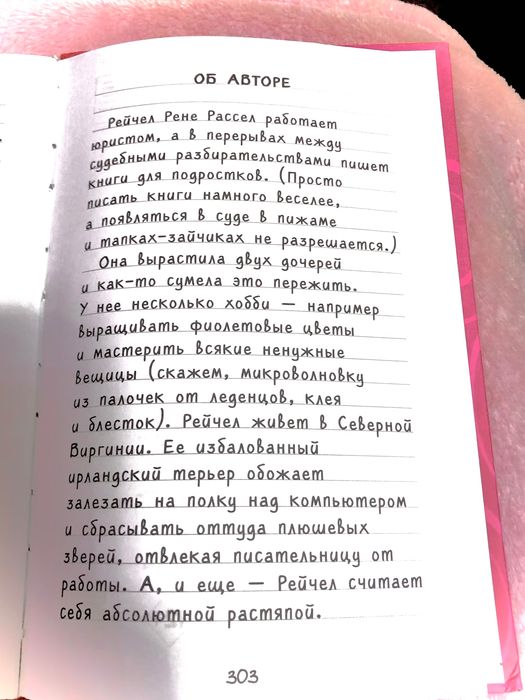 ОБ АВТОРЕ
Рейчел Рене Рассел работает
юристом, а в перерывах между
судебными разбирательствами пишет
книги для подростков. (Просто
писать книги намного веселее,
а появляться в суде в пижаме
и тапках-зайчиках не разрешается.)
Она вырастила двух дочерей
и как-то сумела это пережить.
У нее несколько хобби — например
выращивать фиолетовые цветы
и мастерить всякие ненужные
вещицы (скажем, микроволновку
из палочек от леденцов, клея
и блесток). Рейчел живет в Северной
Виргинии. Ее избалованный
ирландский терьер обожает
залезать на полку над компьютером
и сбрасывать оттуда плюшевых
зверей, отвлекая писательницу от
работы. А, и еще — Рейчел считает
себя абсолютной растяпой.
303